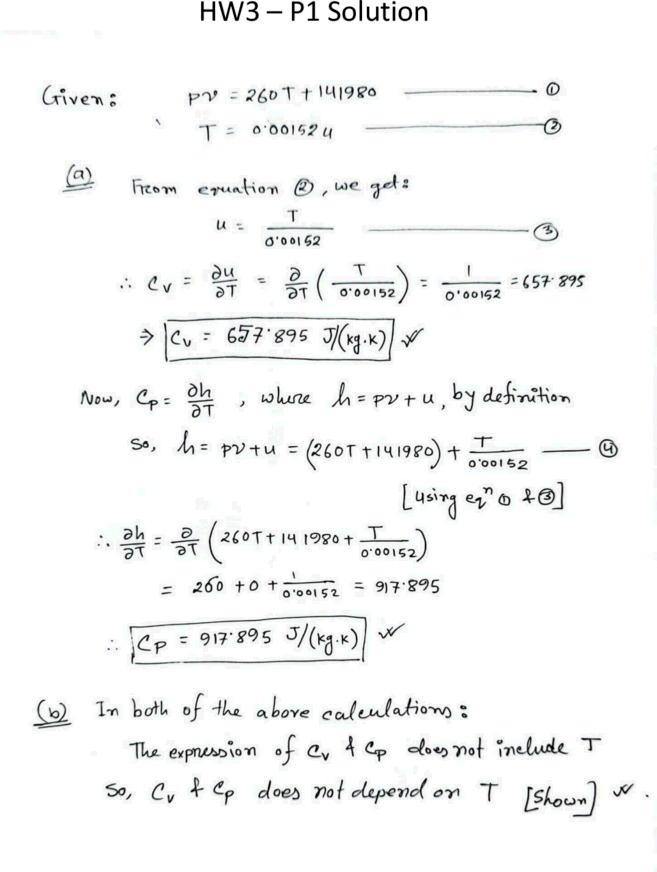 HW3 – P1 Solution
Given: pv = 260T + 141980 ——— ①
T = 0.00152 u ——— ②
(a) From equation ②, we get:
u = T / 0.00152 ——— ③
∴ Cv = ∂u/∂T = ∂/∂T ( T / 0.00152 ) = 1 / 0.00152 = 657.895
⇒ Cv = 657.895 J/(kg.K)
Now, Cp = ∂h/∂T , where h = pv + u, by definition
So, h = pv + u = (260T + 141980) + T / 0.00152 ——— ④
[using eqⁿ ① & ③]
∴ ∂h/∂T = ∂/∂T ( 260T + 141980 + T / 0.00152 )
= 260 + 0 + 1 / 0.00152 = 917.895
∴ Cp = 917.895 J/(kg.K)
(b) In both of the above calculations:
The expression of Cv & Cp does not include T
So, Cv & Cp does not depend on T [Shown].